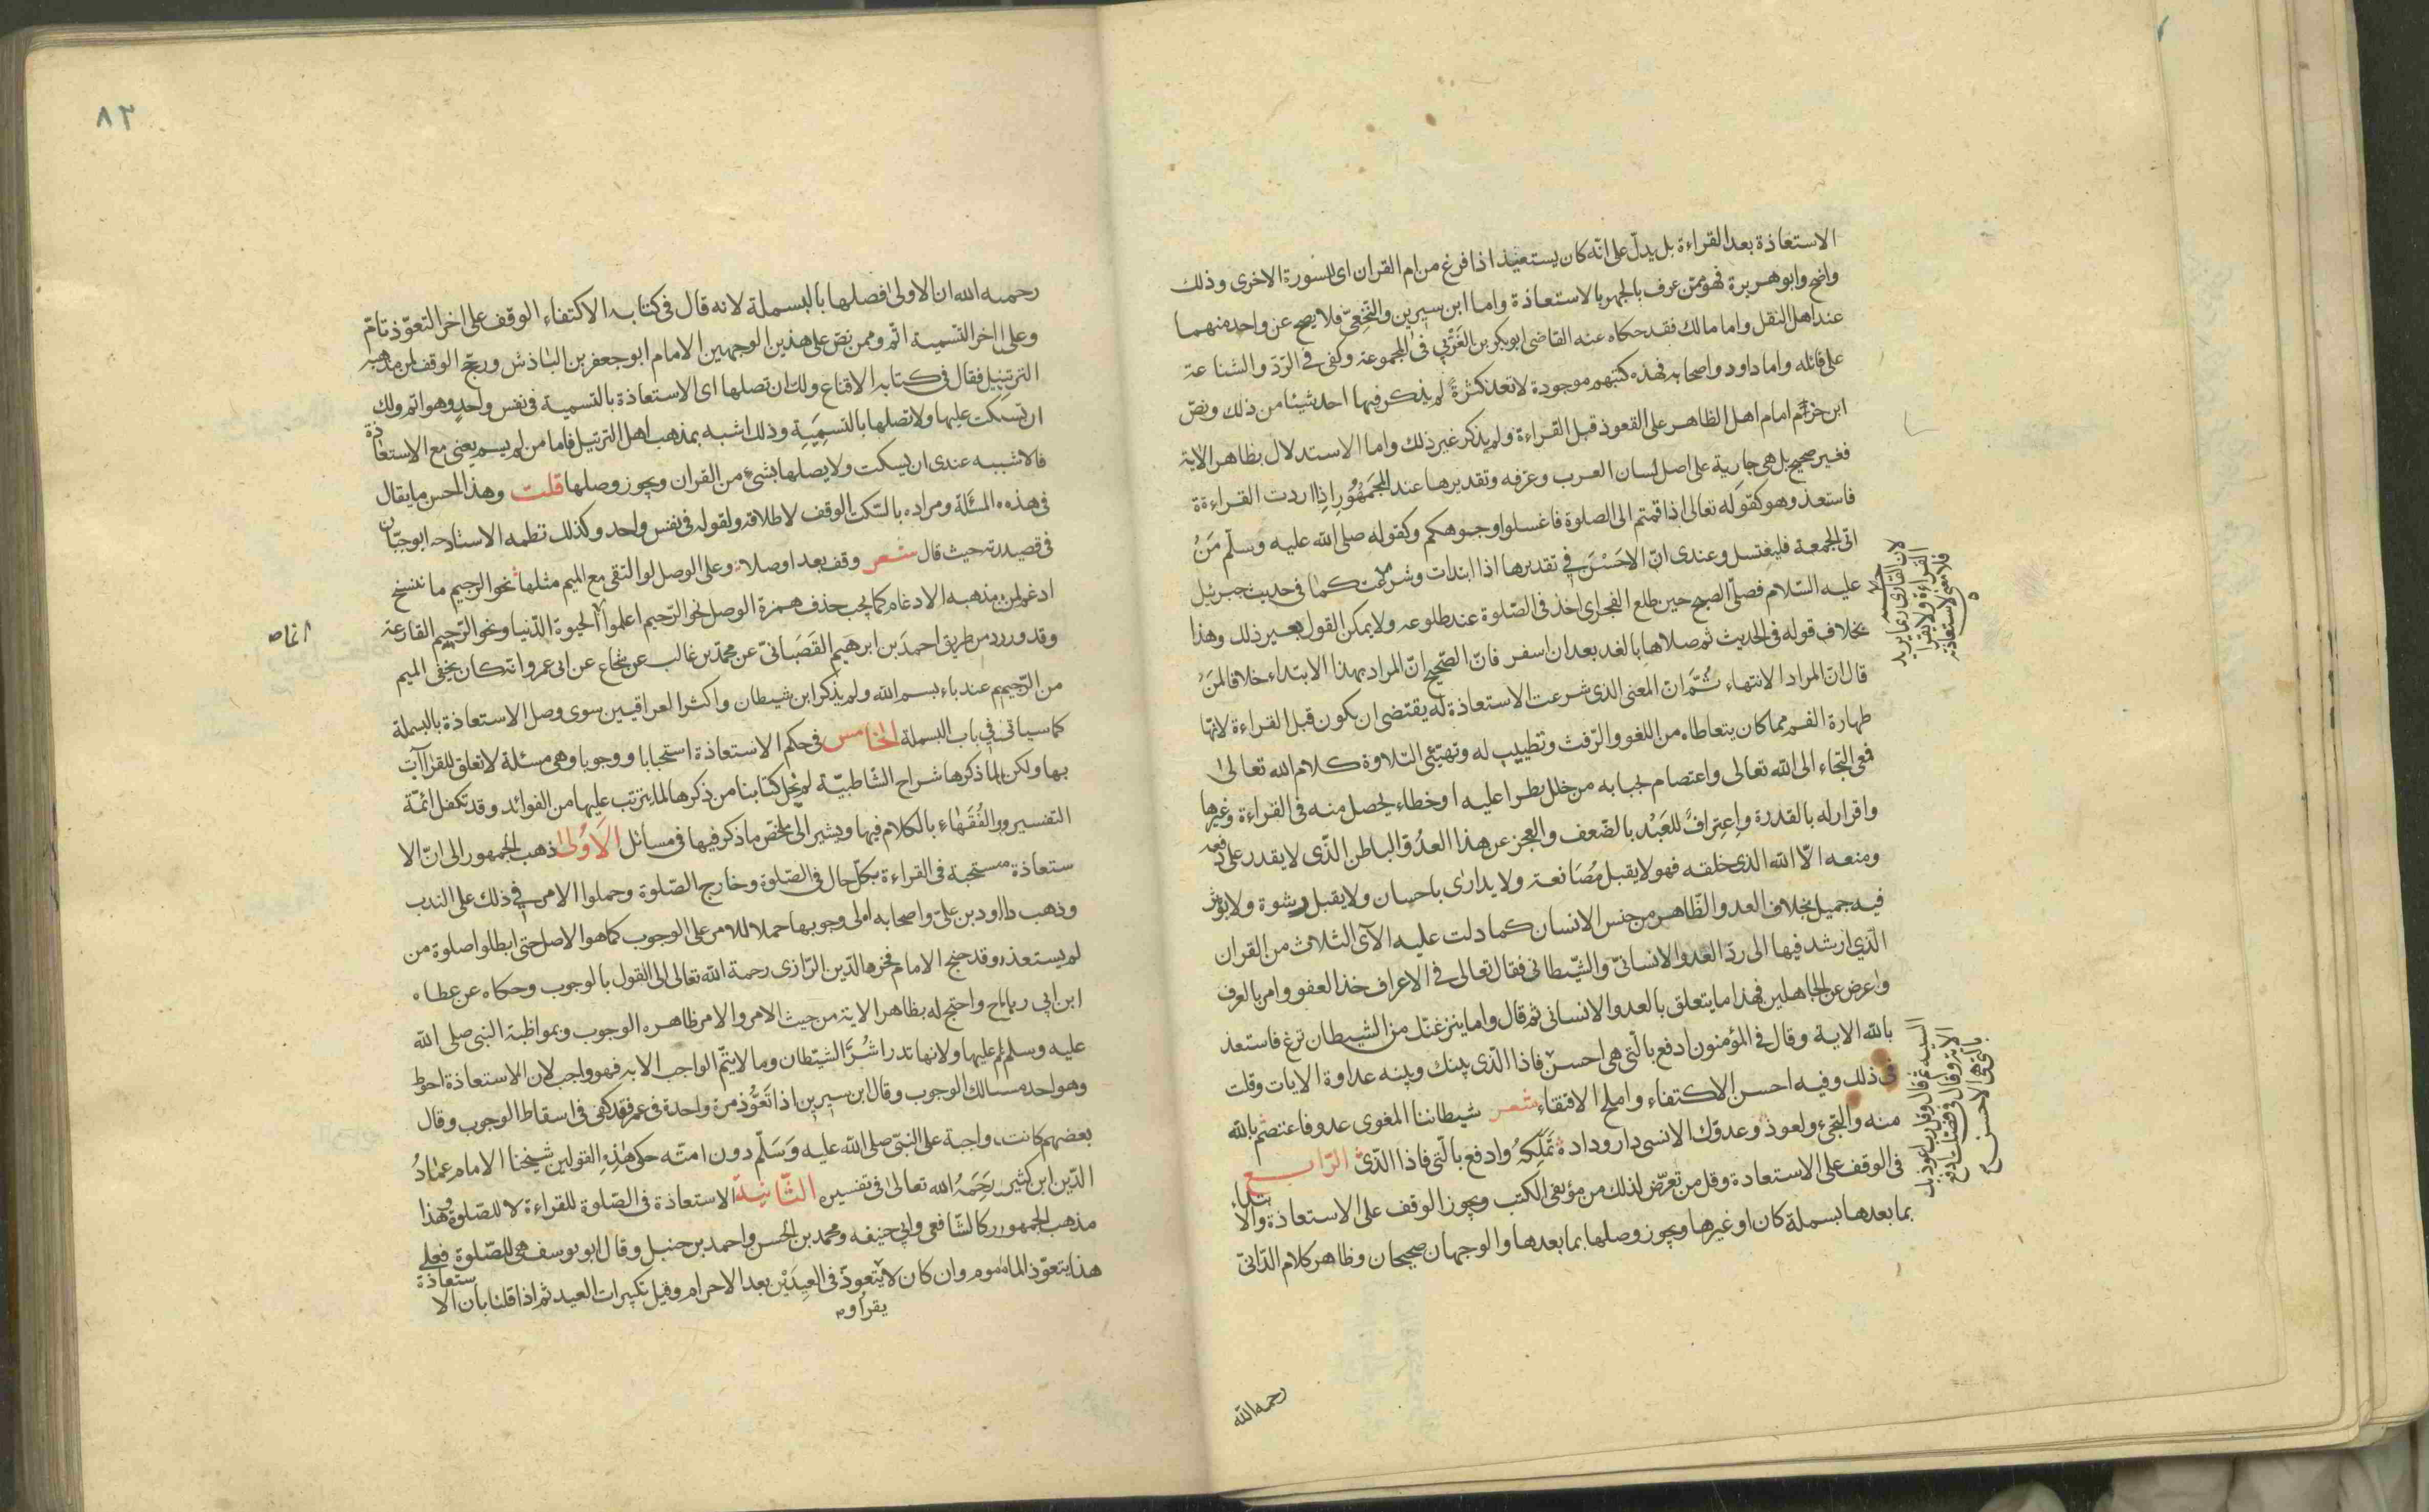 الاستعاذة بعد القراءة بل يدل على انّه كان يستعيذ اذا فرغ من ام القران اى للسورة الاخرى وذلك
واضح وابو هريرة فهو ممّن عرف بالجهر بالاستعاذة واما ابن سيرين والنخعىّ فلا يصح عن واحد منهما
عند اهل النقل واما مالك فقد حكاه عنه القاضى ابو بكر بن العَرَبي فى المجموعة وكفى فى الرّد والشناعة
على قائله واما داود واصحابه فهذه كتبهم موجودة لا تعد كثرةً لم يذكر فيها احد شيئا من ذلك ونصّ
ابن حزم امام اهل الظاهر على التعوذ قبل القراءة ولم يذكر غير ذلك واما الاستدلال بظاهر الاية
فغير صحيح بل هى جارية على اصل لسان العرب وعرفه وتقديرها عند الجمهُورِ اذا اردت القراءة
فاستعذ وهو كقوله تعالى اذا قمتم الى الصلوة فاغسلوا وجوهكم وكقوله صلى الله عليه وسلّم مَنْ
اتى الجمعة فليغتسل وعندى انّ الاحَسْنَ فى تقديرها اذا ابتدات وشرعت كما فى حديث جبرئيل
عليه السّلام فصلّى الصبح حين طلع الفجر اى اخذ فى الصّلوة عند طلوعه ولا يمكن القول بغير ذلك وهذا
بخلاف قوله فى الحديث ثم صلاها بالغد بعد ان اسفر فانّ الصّحيح انّ المراد بهذا الابتداء خلافا لمَنْ
قال انّ المراد الانتهاء ثُمَّ انّ المعنى الذى شرعت الاستعاذة له يقتضى ان يكون قبل القراءة لانّها
طهارة الفم مما كان يتعاطاه من اللغو والرّفث وتطييب له وتهيّئ التلاوة كلام الله تعالى
فهى التجاء الى الله تعالى واعتصام بجنابه من خلل يطرا عليه او خطاء يحصل منه فى القراءة وغيرها
واقرار له بالقدرة واعترافُ للعَبْد بالضّعف والعجز عن هذا العدُوّ الباطن الّذى لا يقدر على دفعه
ومنعه الّا الله الذى خلقه فهو لا يقبل مُصَانعة ولا يدارى باحسان ولا يقبل رشوة ولا يؤثر
فيه جميل بخلاف العدو الظّاهر من جنس الانسان كما دلت عليه الآى الثلاث من القران
الّذى ارشد فيها الى ردّ العدو الانسانىّ والشّيطانى فقال تعالى فى الاعراف خذ العفو وامر بالعرف
واعرض عن الجاهلين فهذا ما يتعلق بالعدو الانسانى ثم قال واما ينزغنّك من الشيطان نزغ فاستعذ
بالله الاية وقال فى المؤمنون ادفع بالّتى هى احسن فاذا الّذى بينك وبينه عداوة الايات وقلت
فى ذلك وفيه احسن الاكتفاء واملح الاقتفاء شعر شيطاننا المغوى عدو فاعتصم بالله
منه والتجىء ولعوذ وعدوّك الانسى دار وداده تَملِكهُ وادفع بالّتى فاذا الّذى الرّابع
فى الوقف على الاستعاذة وقل من تعرّض لذلك من مؤلفى الكتب ويجوز الوقف على الاستعاذة والا
بتداء
بما بعدها بسملة كان او غيرها ويجوز وصلها بما بعدها والوجهان صحيحان وظاهر كلام الدّانى
لان القارى ربما يريد
القراءة ولا يقرا
فلا معنى لاستعاذته
السيئة ثم قال وقل رب اعوذ بك
الاية وقال فى فصلت ادفع
بالتى هى احسن
رحمه الله
٨٢
رحمه الله ان الاولى افصلها بالبسملة لانه قال فى كتابه الاكتفاء الوقف على اخر التعوّذ تامّ
وعلى اخر التسمية اتّم وممن نصّ على هذين الوجهين الامام ابو جعفر بن الباذش ورجّح الوقف لمن مذهبه
الترتيل فقال فى كتابه الاقناع ولك ان تصلها اى الاستعاذة بالتسمية فى نفس واحد وهو اتم ولك
ان تسكت عليها ولا تصلها بالتسمِيَةِ وذلك اشبه بمذهب اهل الترتيل فاما من لم يسم يعنى مع الاستعاذة
فالاشبه عندى ان يسكت ولا يصلها بشىء من القران ويجوز وصلها قلت وهذا احسن ما يقال
فى هذه المسئلة ومراده بالسّكت الوقف لاطلاقه ولقوله فى نفس واحد وكذلك نظمه الاستاد ابو حيّان
فى قصيدته حيث قال شعر وقف بعد او صلا وعلى الوصل لو التقى مع الميم مثلها نحو الرجيم ما ننسخ
ادغم لمن مذهبه الادغام كما يجب حذف همزة الوصل نحو الرّجيم اعلموا انّما الحيوة الدّنيا ونحو الرّجيم القارعة
وقد ورد من طريق احمدَ بن ابرهيم القَصَبانىّ عن محمّد بن غالب عن شجاع عن ابى عمرو انّه كان يخفى الميم
من الرّجيم عند باء بسم الله ولم يذكر ابن شيطان واكثر العراقيين سوى وصل الاستعاذة بالبسملة
كما سياتى فى باب البسملة الخامس فى حكم الاستعاذة استحبابا ووجوبا وهى مسئلة لا تعلق للقراات
بها ولكن لما ذكرها شراح الشّاطبيّة لم نخل كتابنا من ذكرها لما يترتب عليها من الفوائد وقد تكفل ائمّة
التفسير والفُقَهاء بالكلام فيها ويشير الى ملخّص ما ذكر فيها فى مسائل الاُوْلى ذهب الجمهور الى انّ الا
ستعاذة مستحبة فى القراءة بكلّ حال فى الصّلوة وخارج الصّلوة وحملوا الامر فى ذلك على الندب
وذهب داود بن علىّ واصحابه الى وجوبها حملا للامر على الوجوب كما هو الاصل حتى ابطلوا صلوة من
لم يستعذ وقد جنح الامام فخر الدّين الرّازى رحمة الله تعالى الى القول بالوجوب وحكاه عن عطاء
ابن ابى رباح واحتج له بظاهر الاية من حيث الامر والامر ظاهره الوجوب وبمواظبة النبى صلى الله
عليه وسلم عليها ولانها تدرا شُرَّ الشّيطان وما لا يتمّ الواجب الا به فهو واجب لان الاستعاذة احوط
وهو احد مسالك الوجوب وقال ابن سيرين اذا تَعَوَّذ مرة واحدة فى عمره فقد كفى فى اسقاط الوجوب وقال
بعضهم كانت واجبة على النبّى صلى الله عليه وَسَلّم دون امته حكى هٰذه القولين شيخنا الامام عمادُ
الدّين ابن كثير رَحِمَهُ الله تعالى فى تفسيره الثّانية الاستعاذة فى الصّلوة للقراءة لا للصّلوة وهذا
مذهب الجمهور كالشّافعى وابى حنيفه ومحمد بن الحسن واحمد بن حنبل وقال ابو يوسف هى للصّلوة فعلى
هذا يتعوّذ الماموم وان كان لا يتعوذّ فى العيدَيْن بعد الاحرام وقبل تكبيرات العيد ثم اذا قلنا بان الا
ستعاذة
يقرا و